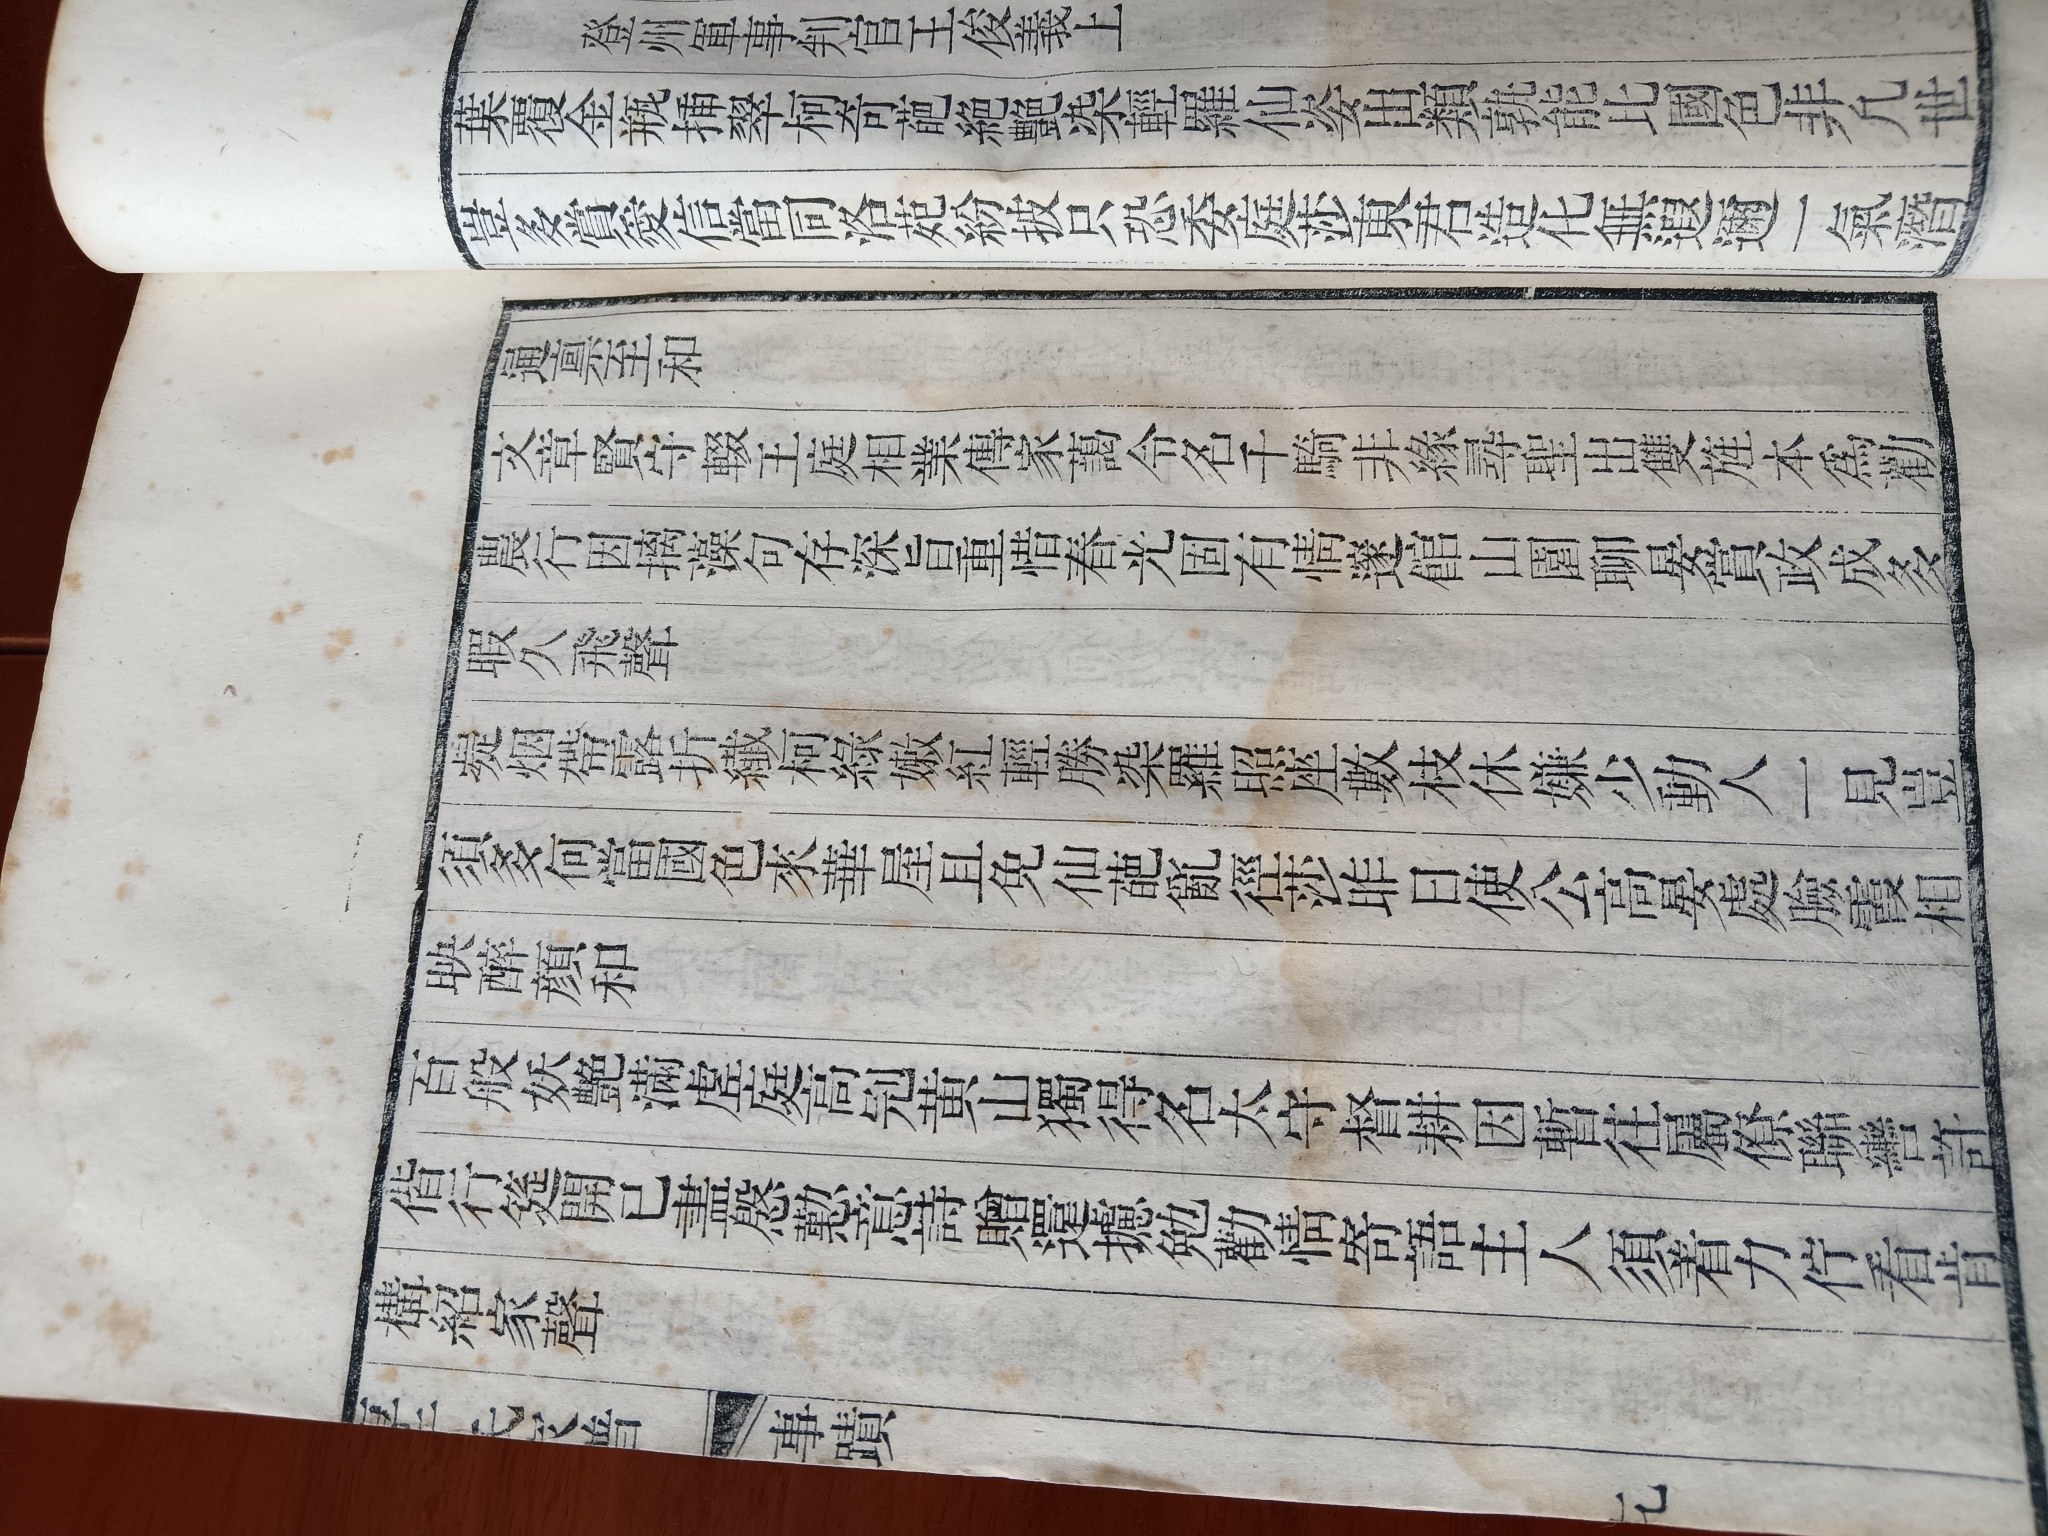 登州軍事判官王俊義上
葉覆金瓶插翠柯奇葩絕艷染輕羅仙姿出類孰能比國色非凡世
豈多賞愛信當同洛苑紛披只恐委庭莎東君造化無遐邇一氣潛
通稟至和
文章賢守輟王庭相業傳家藹令名千騎非緣尋聖出雙旌本為勸
農行因摛藻句存深旨重惜春光固有情邃館山園聊晏賞政成多
暇久飛聲
凝烟帶露折纖柯綠嫩紅輕勝染羅照座數枝休嫌少動人一見豈
須多何當國色來華屋且免仙葩亂徑莎昨日使公高晏處臉霞相
映醉顏和
百般妖艷滿虛庭高冠黃山獨得名太守督耕因暫往屬僚聯轡許
偕行筵開已盡慇懃意詩贈還攄勉勸情寄語主人須着力佇看肯
構紹家聲
事蹟